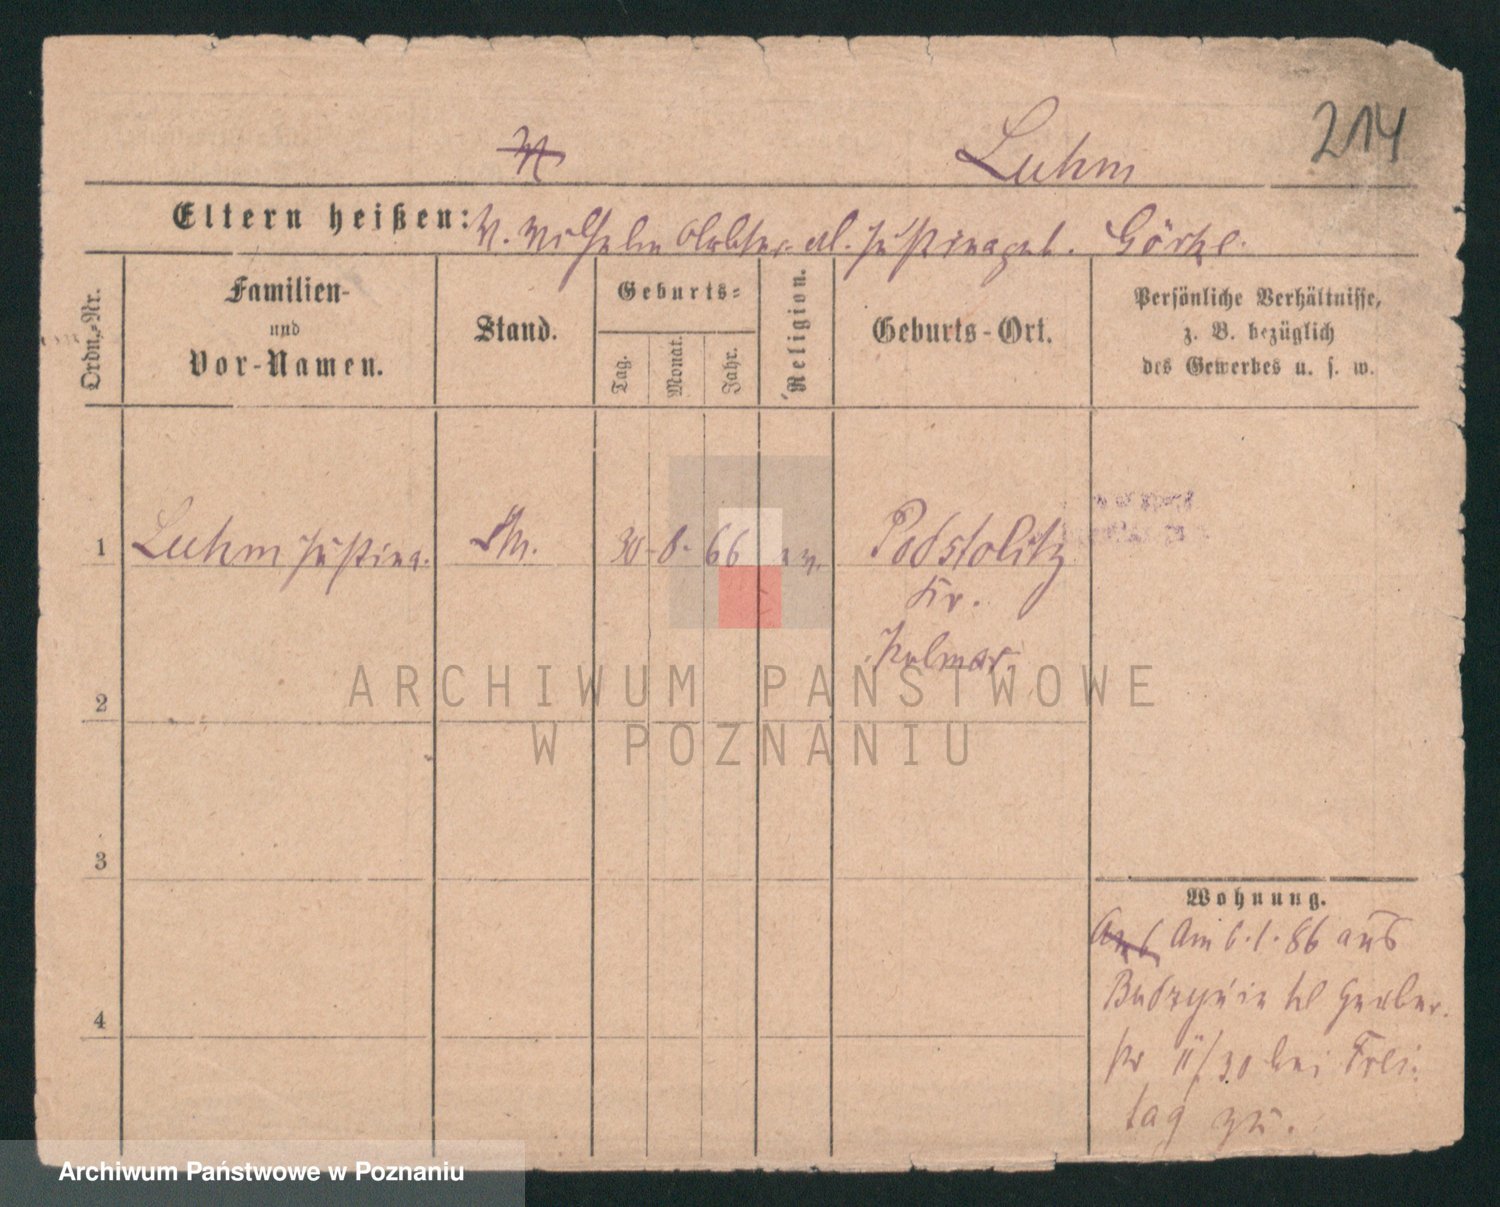 Luhm
214
Eltern heißen: V. Wilhelm M. Justina geb. Görke.
Ordn.-Nr.
Familien-
und
Vor-Namen.
Stand.
Geburts-
Tag.
Monat.
Jahr.
Religion.
Geburts-Ort.
Persönliche Verhältnisse,
z. B. bezüglich
des Gewerbes u. s. w.
1 Luhm Justina. 30. 8. 66 ev. Podstolitz
Kr.
Kolmar
2
3
4
Wohnung.
Am 6.1.86 aus
Budzyń in Gerber-
str 11/30 bei Frei-
tag zu.
ARCHIWUM PAŃSTWOWE
W POZNANIU
Archiwum Państwowe w Poznaniu